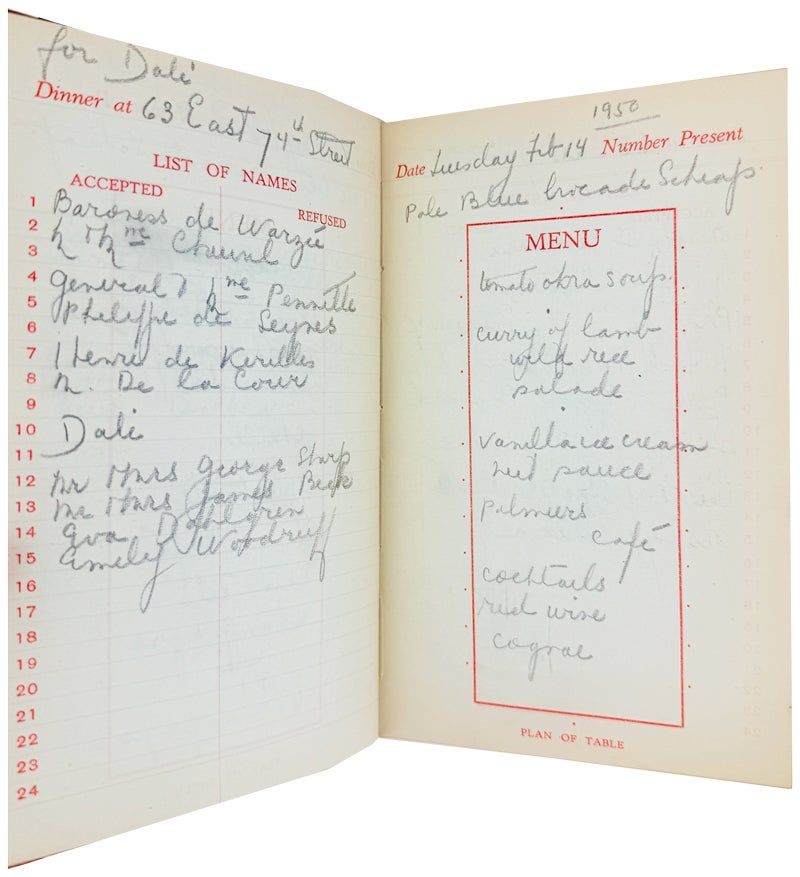 for Dali
Dinner at 63 East 74th Street
LIST OF NAMES
ACCEPTED
REFUSED
1 Baroness de Warzée
2 M & Mme
3
4 General & Mme Pennette
5 Philippe de Seynes
6
7 Henri de Kerillis
8 M. De la Cour
9
10 Dali
11
12 Mr & Mrs George Sharp
13 Mr & Mrs James Beek
14 Eva Dahlgren
15 Emely Woodruff
16
17
18
19
20
21
22
23
24
1950
Date Tuesday Feb 14 Number Present
Pale Blue brocade Schiap.
MENU
tomato okra soup.
curry of lamb
wild rice
salade
vanilla ice cream
nut sauce
palmiers
café
cocktails
red wine
cognac
PLAN OF TABLE